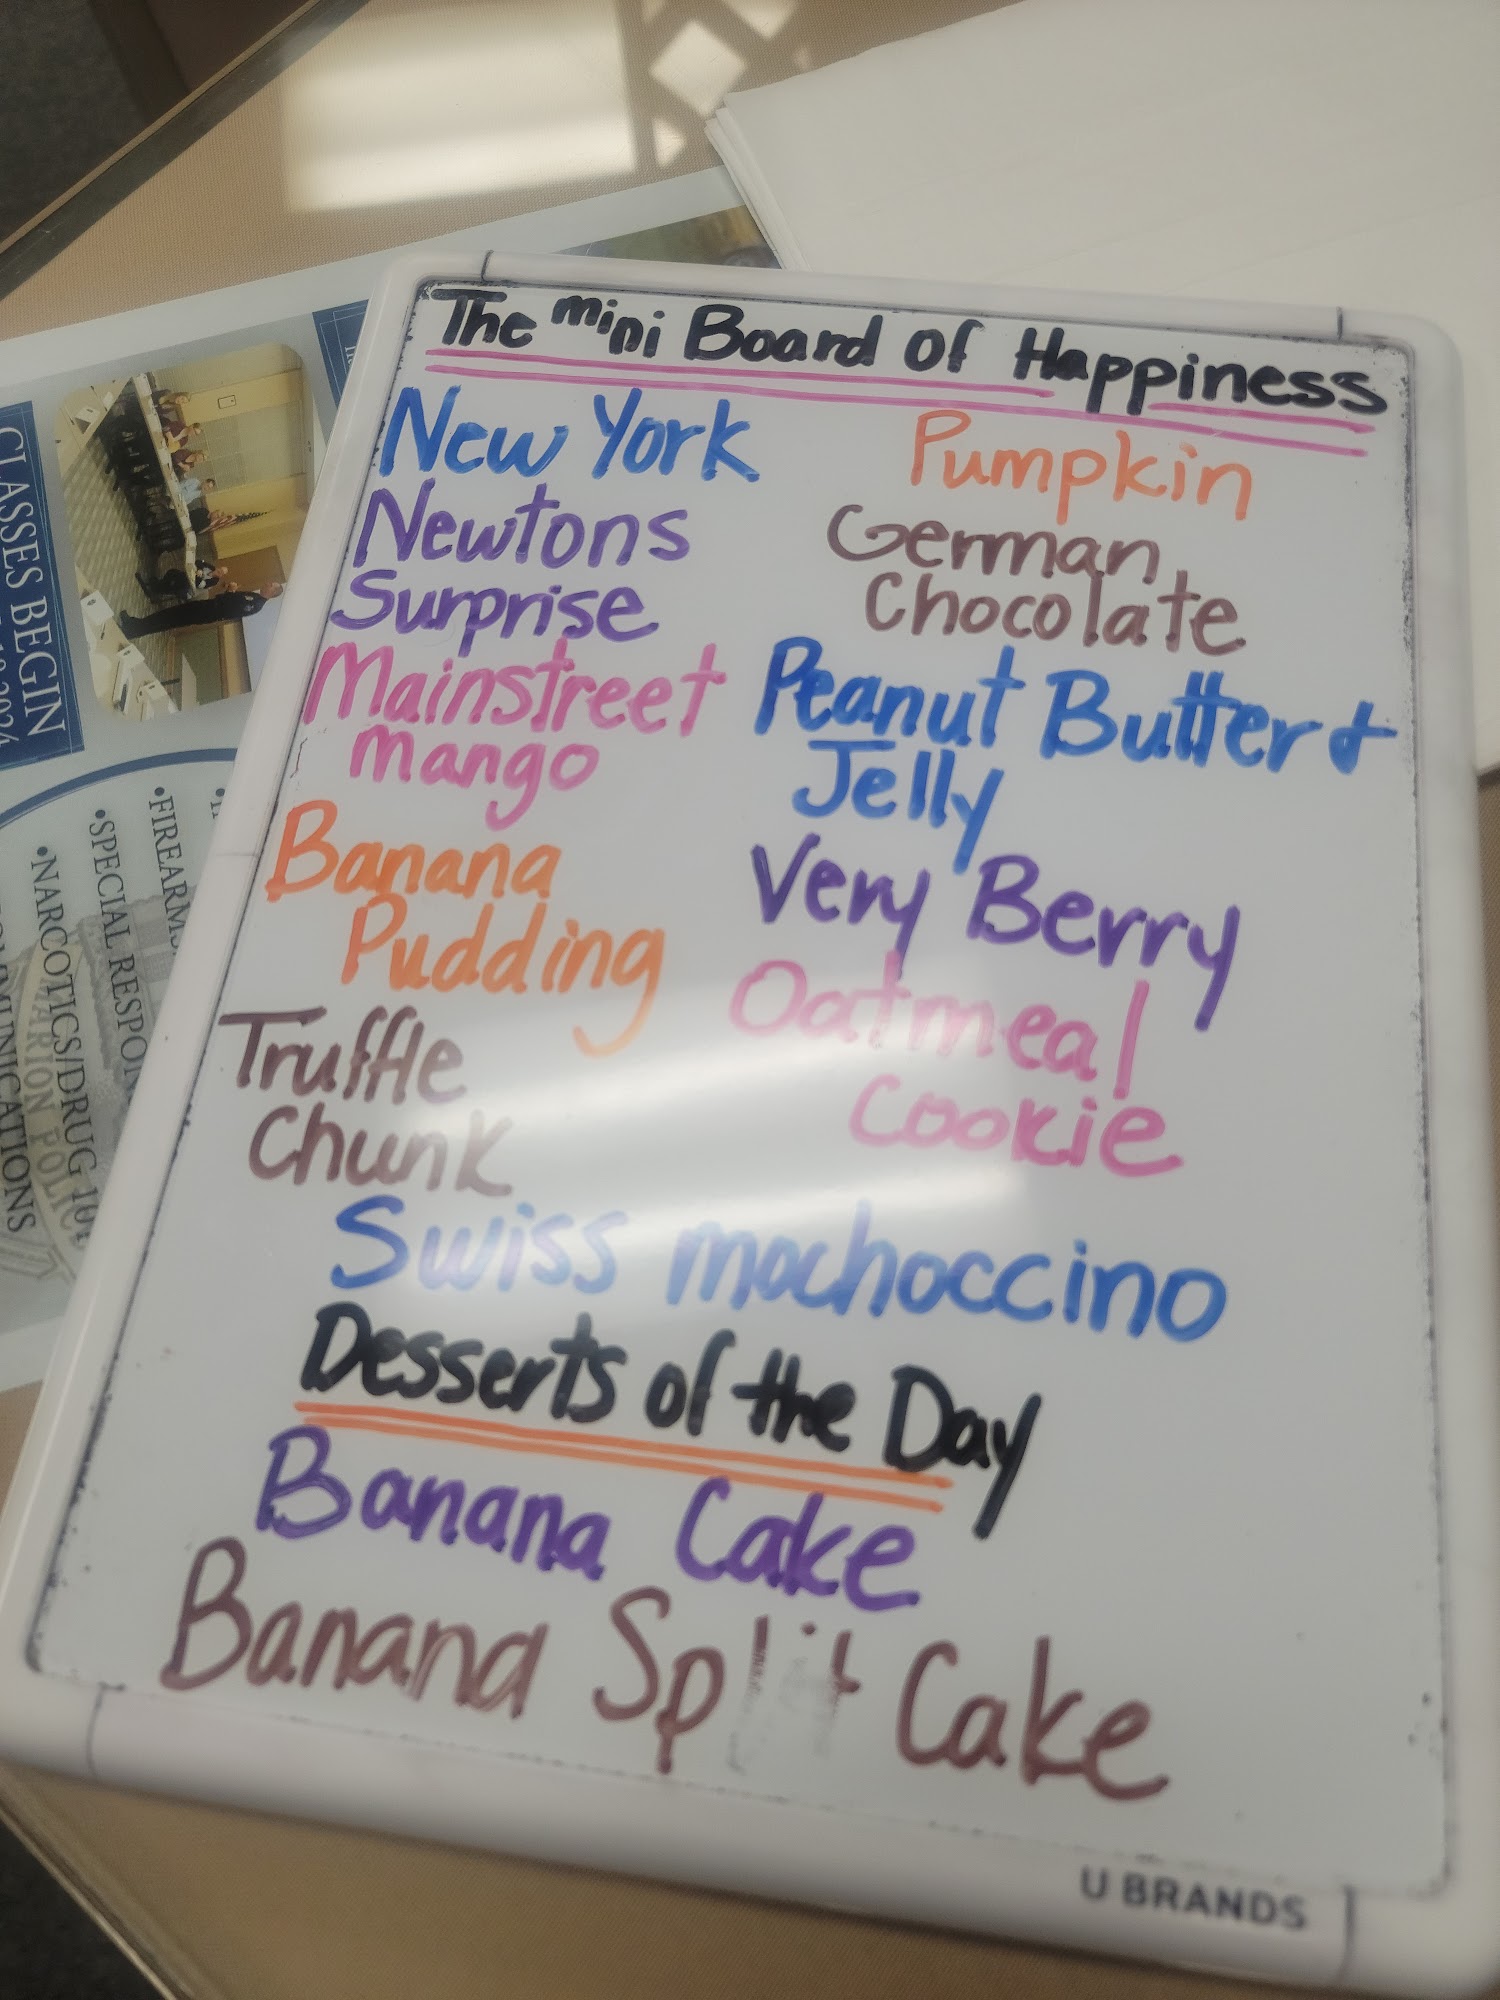 The mini Board of Happiness
New York
Newtons
Surprise
Mainstreet
mango
Banana
Pudding
Truffle
Chunk
Pumpkin
German
Chocolate
Peanut Butter &
Jelly
Very Berry
Oatmeal
Cookie
Swiss mochoccino
Desserts of the Day
Banana Cake
Banana Split Cake
U BRANDS
CLASSES BEGIN
2024
•FIREARMS
•SPECIAL RESPON
•NARCOTICS/DRUG 101
MARION POLIC